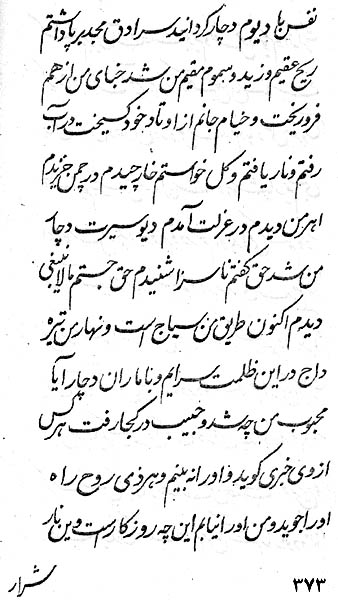 نفس با دیوم دچار کردانید سرادق مجد بر پا داشتم
ریح عقیم وزید و سموم مقیم من شد خبای من از هم
فرو ریخت و خیام جانم از اوتاد خود کسیخت در آب
رفتم و نار یافتم و کل خواستم خار چیدم در چمن خزیدم
اهرمن دیدم در عزلت آمدم دیو سیرت دچار
من شد حق کفتم ناسزا شنیدم حق جستم مالاینبغی
دیدم اکنون طریق من سیاج است و نهار من تیره
داج در این ظلمت سرایم و با ماران دچار آیا
محبوب من چه شد و حبیب در کجا رفت هر کس
از وی خبری کوید و او را نه بینم و هر ذی روح راه
او را جوید و من او را نیابم این چه روز کار است و این نار
شرار
۳۷۳